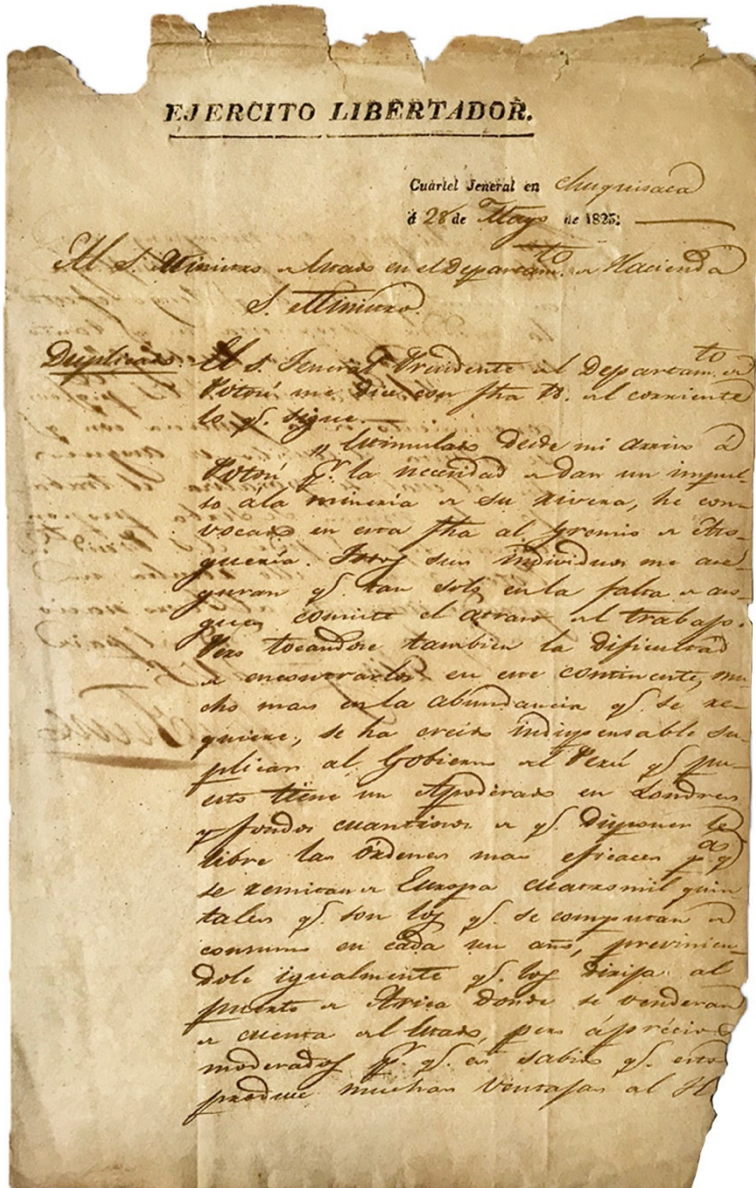 EJERCITO LIBERTADOR.
Cuartel Jeneral en Chuquisaca
á 28 de Mayo de 1825.
Al S. Ministro de Estado en el Departam.to de Hacienda
S. Ministro
Duplicado El S. Jeneral Presidente del Departam.to de
Potosí me dice con fha 18. del corriente
lo q.e sigue.
„ Estimulado desde mi arrivo á
Potosí p.r la necesidad de dar un impul-
so á la minería de su rivera, he con-
vocado en esta fha al gremio de Aso-
guería. Todos sus individuos me ase-
guran q.e tan solo en la falta de aso-
gues consiste el atraso del trabajo.
Pero tocandose tambien la dificultad
de encontrarlos en este continente, mu-
cho mas en la abundancia q.e se re-
quiere, se ha creido indispensable su-
plicar al Gobierno del Perú q.e pu-
esto tiene un Apoderado en Londres
y fondos cuantiosos de q.e disponer le
libre las órdenes mas eficaces p.a q.e
se remitan de Europa cuatro mil quin-
tales q.e son los q.e se computan de
consumo en cada un año, previnien-
dole igualmente q.e los dirija al
puerto de Arica donde se venderan
de cuenta del Estado, pero á precios
moderados p.r q.e es sabido q.e esto
produce muchas ventajas al